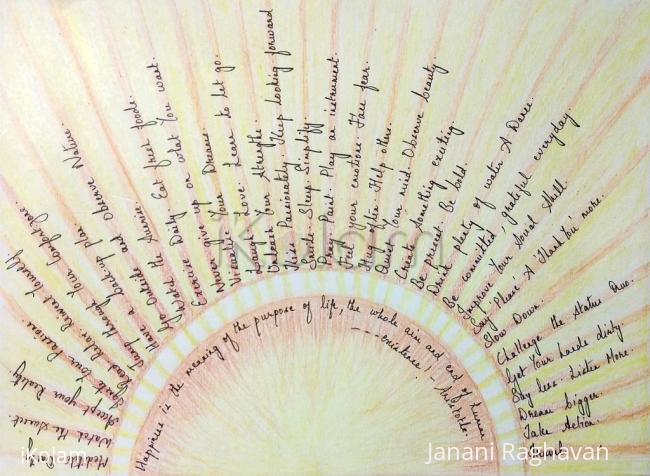 Meditate Daily.
Watch the Sunset.
Accept your Reality.
Ignite Your Passion.
Read Better. Reinvent Yourself.
Jump through Your Comfort zone.
Have a Back-up plan.
Go Outside and Observe Nature.
Avoid the Junkie.
Exercise Daily Eat fresh foods.
Never give up on What You want.
Visualize Your Dreams.
Laugh. Love. Learn to let go.
Unleash Your Strengths.
Kiss Passionately. Keep looking forward
Smile. Sleep. Simplify.
Pray. Paint. Play an instrument.
Feel your emotions. Face fear.
Hug often. Help others.
Quiet Your mind. Observe beauty.
Create Something exciting.
Be present. Be bold.
Drink plenty of water & Dance.
Be committed, grateful everyday.
Improve Your Social Skill.
Say 'Please' & 'Thank You' more.
Slow Down.
Challenge the Status Quo.
Get Your hands dirty.
Say less. Listen More.
Dream bigger.
Take Action.
Laugh
Happiness is the meaning of the purpose of life, the whole aim and end of human
existence! - Aristotle.
Kolam
iKolam
Janani Raghavan